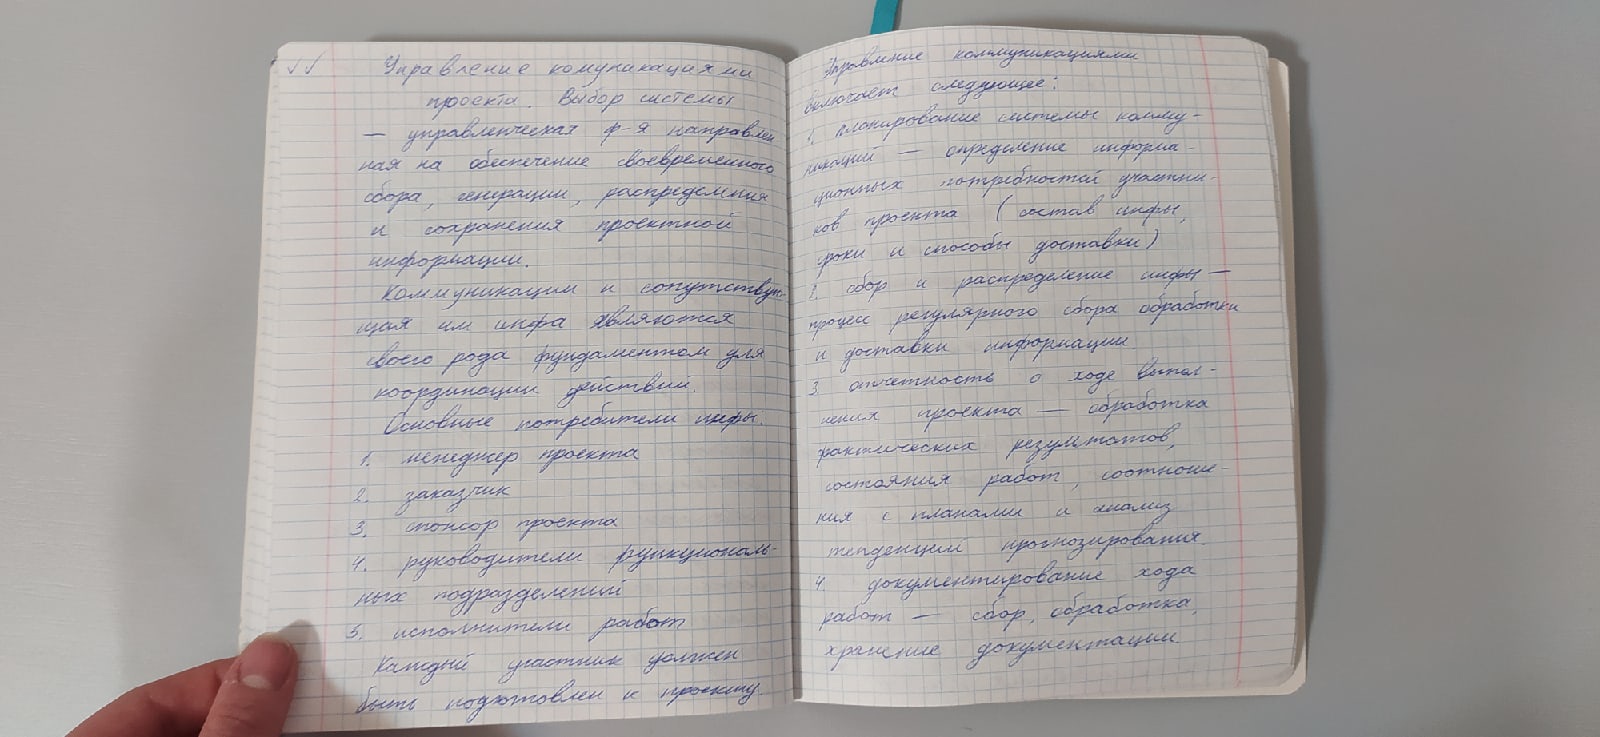 Управление комуникациями
проекта. Выбор системы
— управленческая ф-я направлен
ная на обеспечение своевременного
сбора, генерации, распределения
и сохранения проектной
информации.
Коммуникации и сопутствую
щая им инфа являются
своего рода фундаментом для
координации действий.
Основные потребители инфы.
1. менеджер проекта
2. заказчик
3. спонсор проекта
4. руководители функциональ-
ных подразделений
5. исполнители работ
Каждый участник должен
быть подготовлен к проекту.
Управление коммуникациями
включает следующее:
1. планирование системы комму-
никаций — определение информа-
ционных потребностей участни-
ков проекта (состав инфы,
сроки и способы доставки)
2. сбор и распределение инфы —
процесс регулярного сбора обработки
и доставки информации
3. отчетность о ходе выпол-
нения проекта — обработка
фактических результатов,
состояния работ, соотноше-
ния с планами и анализ
тенденций прогнозирования.
4. документирование хода
работ — сбор, обработка,
хранение документации